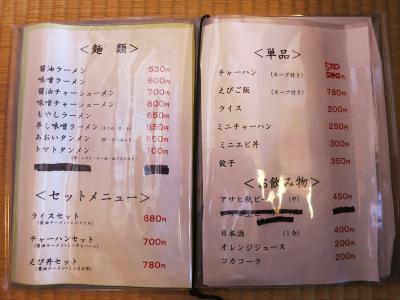 <麺 類>
醤油ラーメン 530円
味噌ラーメン 600円
醤油チャーシューメン 700円
味噌チャーシューメン 800円
もやしラーメン 650円
辛し味噌ラーメン 650円
あおいタンメン 650円
トマトタンメン 700円
<セットメニュー>
ライスセット 680円
(醤油ラーメン+ミニライス)
チャーハンセット 700円
(醤油ラーメン+ミニチャーハン)
えび丼セット 780円
(醤油ラーメン+ミニえび丼)
<単品>
チャーハン (スープ付き)
えびご飯 (スープ付き) 780円
ライス 200円
ミニチャーハン 250円
ミニエビ丼 300円
餃子 350円
飲み物>
アサヒ瓶ビール (中) 450円
日本酒 (1合) 400円
オレンジジュース 200円
コカコーラ 200円